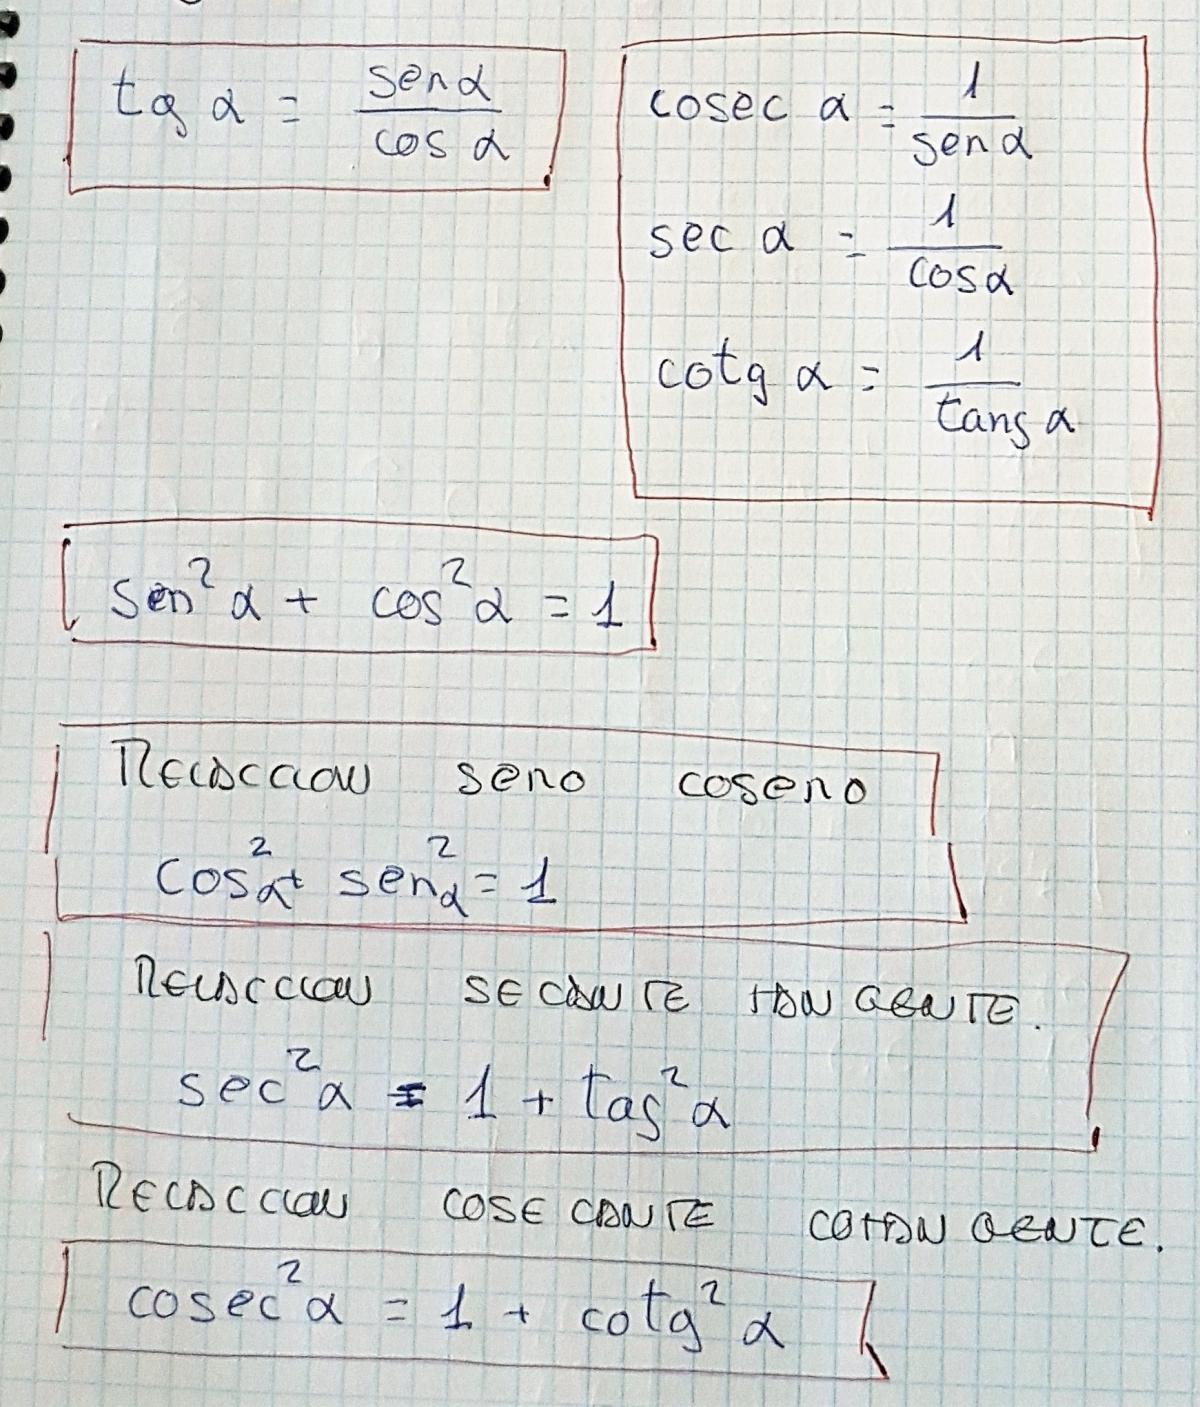 tg α = sen α / cos α
cosec α = 1 / sen α
sec α = 1 / cos α
cotg α = 1 / tang α
sen² α + cos² α = 1
RELACCION seno coseno
cos²α + sen²α = 1
RELACCION SECANTE TANGENTE.
sec² α = 1 + tag² α
RELACCION COSECANTE COTANGENTE.
cosec² α = 1 + cotg² α